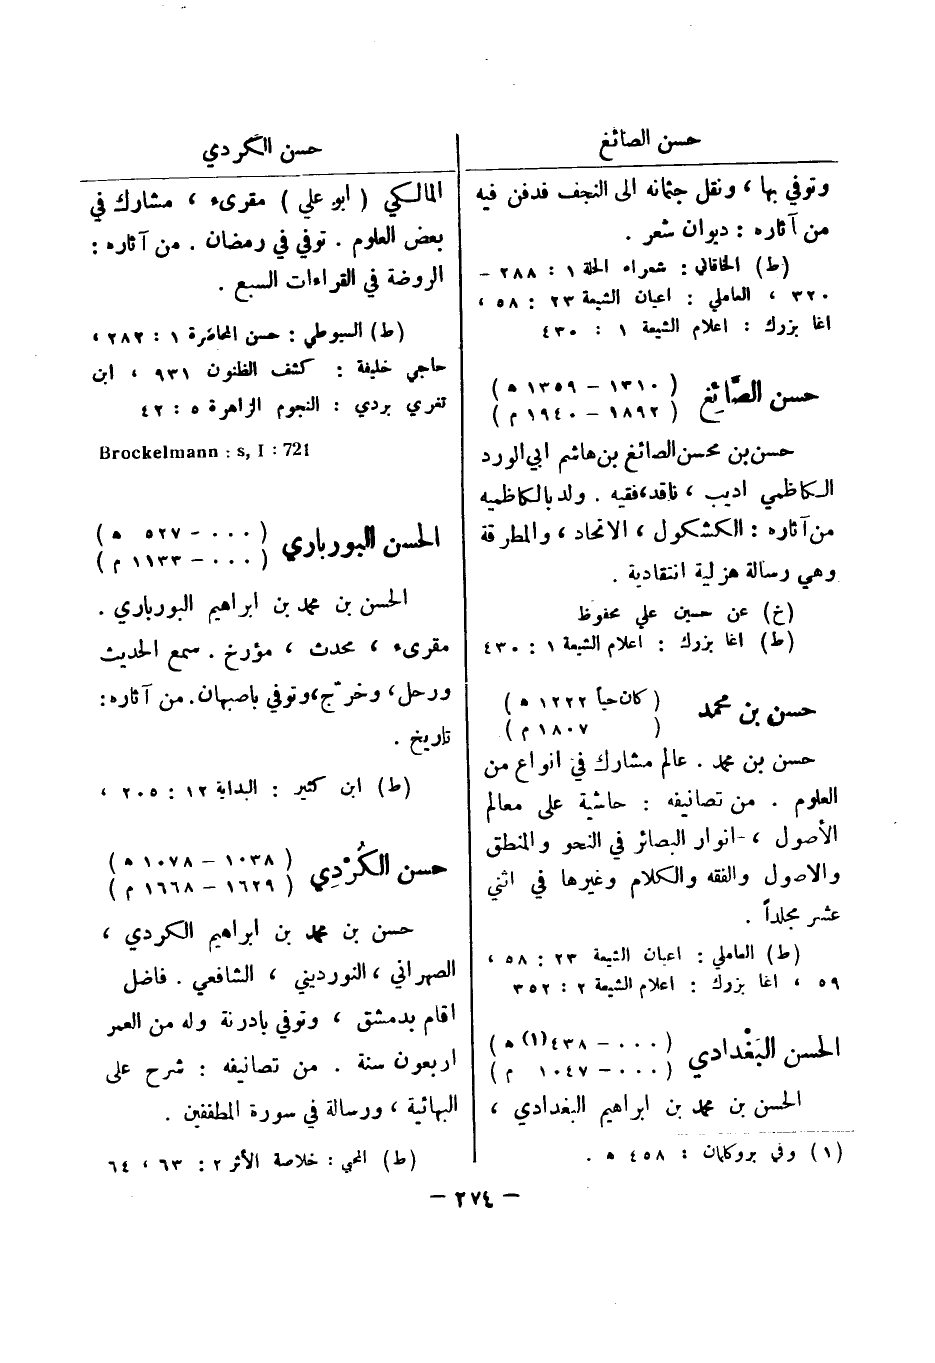 حسن الصائغ
وتوفي بها ، ونقل جثمانه الى النجف فدفن فيه
من آثاره : ديوان شعر .
(ط) الخاقاني : شعراء الحلة ١ : ٢٨٨ –
٣٢٠ ، العاملي : اعيان الشيعة ٢٣ : ٥٨ ،
اغا بزرك : اعلام الشيعة ١ : ٤٣٠
حسن الصَّائِغ ( ١٣١٠ – ١٣٥٩ ه )
( ١٨٩٢ – ١٩٤٠ م )
حسن بن محسن الصائغ بن هاشم ابي الورد
الكاظمي اديب ، ناقد ، فقيه . ولد بالكاظمية
من آثاره : الكشكول ، الاتحاد ، والمطرقة
وهي رسالة هزلية انتقادية .
(خ) عن حسين علي محفوظ
(ط) اغا بزرك : اعلام الشيعة ١ : ٤٣٠
حسن بن محمد ( كان حياً ١٢٢٢ ه )
( ١٨٠٧ م )
حسن بن محمد . عالم مشارك في انواع من
العلوم . من تصانيفه : حاشية على معالم
الأصول ، انوار البصائر في النحو والمنطق
والاصول والفقه والكلام وغيرها في اثني
عشر مجلداً .
(ط) العاملي : اعيان الشيعة ٢٣ : ٥٨ ،
٥٩ ، اغا بزرك : اعلام الشيعة ٢ : ٣٥٢
الحسن البَغْدادي ( ٠٠٠ – ٤٣٨(١) ه )
( ٠٠٠ – ١٠٤٧ م )
الحسن بن محمد بن ابراهيم البغدادي ،
(١) وفي بروكلمان : ٤٥٨ ه .
حسن الكردي
المالكي ( ابو علي ) مقرىء ، مشارك في
بعض العلوم . توفي في رمضان . من آثاره :
الروضة في القراءات السبع .
(ط) السيوطي : حسن المحاضرة ١ : ٢٨٢ ،
حاجي خليفة : كشف الظنون ٩٣١ ، ابن
تغري بردي : النجوم الزاهرة ٥ : ٤٢
Brockelmann : s, I : 721
الحسن البورباري ( ٠٠٠ – ٥٢٧ ه )
( ٠٠٠ – ١١٣٣ م )
الحسن بن محمد بن ابراهيم البورباري .
مقرىء ، محدث ، مؤرخ . سمع الحديث
ورحل ، وخرّج ، وتوفي باصبهان . من آثاره :
تاريخ .
(ط) ابن كثير : البداية ١٢ : ٢٠٥ ،
حسن الكُرْدِي ( ١٠٣٨ – ١٠٧٨ ه )
( ١٦٢٩ – ١٦٦٨ م )
حسن بن محمد بن ابراهيم الكردي ،
الصهراني ، النورديني ، الشافعي . فاضل
اقام بدمشق ، وتوفي بادرنة وله من العمر
اربعون سنة . من تصانيفه : شرح على
البهائية ، ورسالة في سورة المطففين .
(ط) المحبي : خلاصة الأثر ٢ : ٦٣ ، ٦٤
– ٢٧٤ –